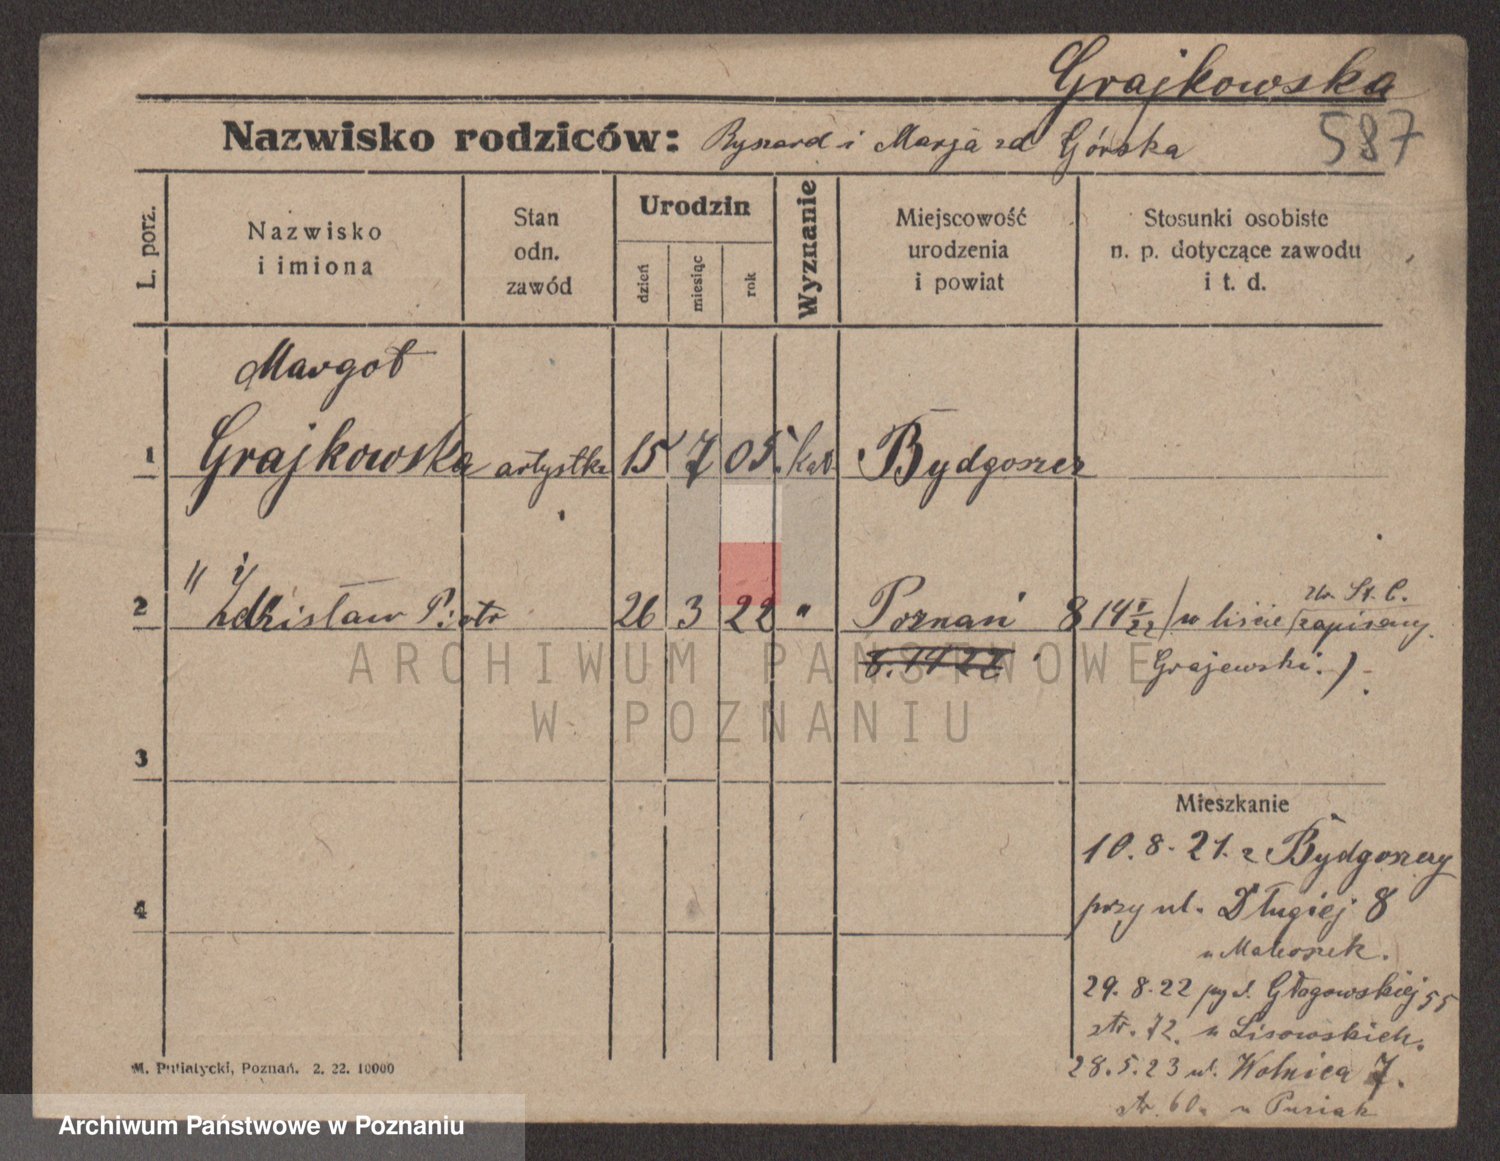 Grajkowska
587
Nazwisko rodziców: Ryszard i Marja zd Górska
L. porz.
Nazwisko i imiona
Stan odn. zawód
Urodzin
dzień
miesiąc
rok
Wyznanie
Miejscowość urodzenia i powiat
Stosunki osobiste n. p. dotyczące zawodu i t. d.
Margot
1 Grajkowska artystka 15 7 05. kat. Bydgoszcz
2 " Zdzisław Piotr 26 3 22 " Poznań 8 14 / w liście zapisany
8.14 22
Grajewski.)
3
4
Mieszkanie
10. 8. 21. z Bydgoszczy
przy ul. Długiej 8
u
29. 8. 22 Głogowskiej 55
str. 72. u Lisowskich.
28. 5. 23 ul. Wolnica 7.
str. 60. u
M. Putiatycki, Poznań. 2. 22. 10000
ARCHIWUM PAŃSTWOWE
W POZNANIU
Archiwum Państwowe w Poznaniu